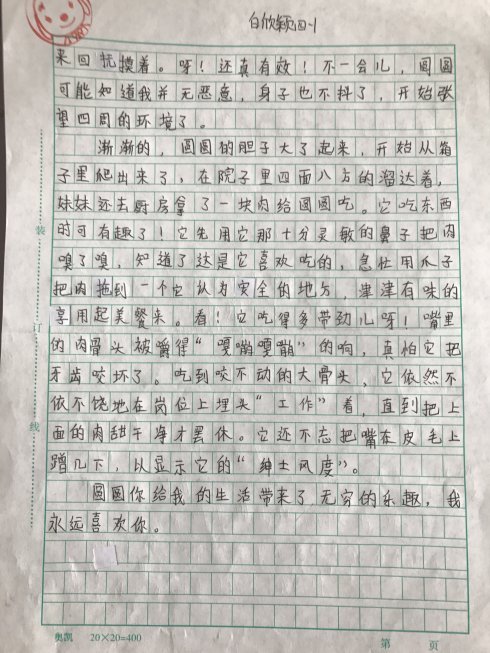 白欣颖四-1
来回抚摸着。呀！还真有效！不一会儿，圆圆
可能知道我并无恶意，身子也不抖了，开始张
望四周的环境了。
渐渐的，圆圆的胆子大了起来，开始从箱
子里爬出来了，在院子里四面八方的溜达着，
妹妹还去厨房拿了一块肉给圆圆吃。它吃东西
的可有趣了！它先用它那十分灵敏的鼻子把肉
嗅了嗅，知道了这是它喜欢吃的，急忙用爪子
把肉拖到一个它认为安全的地方，津津有味的
享用起美餐来。看！它吃得多带劲儿呀！嘴里
的肉骨头被嚼得“嘎嘣嘎嘣”的响，真怕它把
牙齿咬坏了。吃到咬不动的大骨头，它依然不
依不饶地在岗位上埋头“工作”着，直到把上
面的肉甜干净才罢休。它还不忘把嘴在皮毛上
蹭几下，以显示它的“绅士风度”。
圆圆你给我的生活带来了无穷的乐趣，我
永远喜欢你。
装
订
线
奥凯 20×20=400 第 页